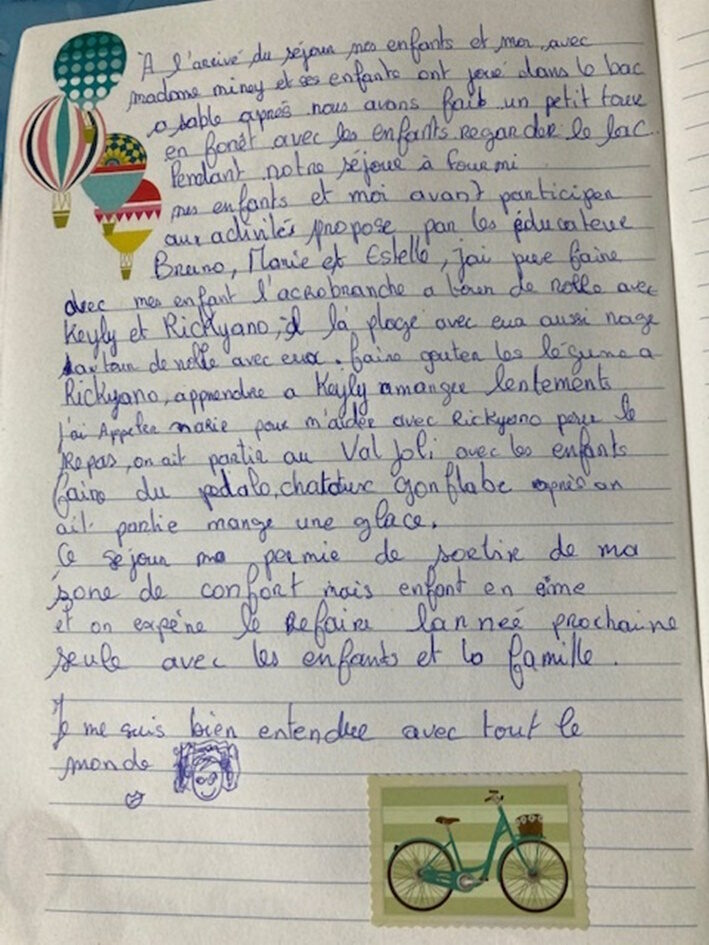 A l'arrivé du séjour mes enfants et moi avec
madame miney et ses enfants ont joué dans le bac
a sable après nous avons fait un petit tour
en forêt avec les enfants regarder le lac.
Pendant notre séjour à fourmi
mes enfants et moi avant participer
aux activités propose par les éducateur
Bruno, Marie et Estelle, j'ai pue faire
avec mes enfant l'acrobranche a tour de rolle avec
Keyly et Rickyano, la plage avec eux aussi nage
a tour de rolle avec eux. faire gouter les légume a
Rickyano, apprendre a Keyly a manger lentements
j'ai Appeler marie pour m'aider avec Rickyano pour le
repas, on ait partie au Val Joli avec les enfants
faire du pedalo, chatoux gonflabe après on
ait partie mange une glace.
Ce séjour ma permie de sortir de ma
zone de confort mais enfant en aime
et on expère le Refaire lanneé prochaine
seule avec les enfants et la famille.
Je me suis bien entendue avec tout le
monde